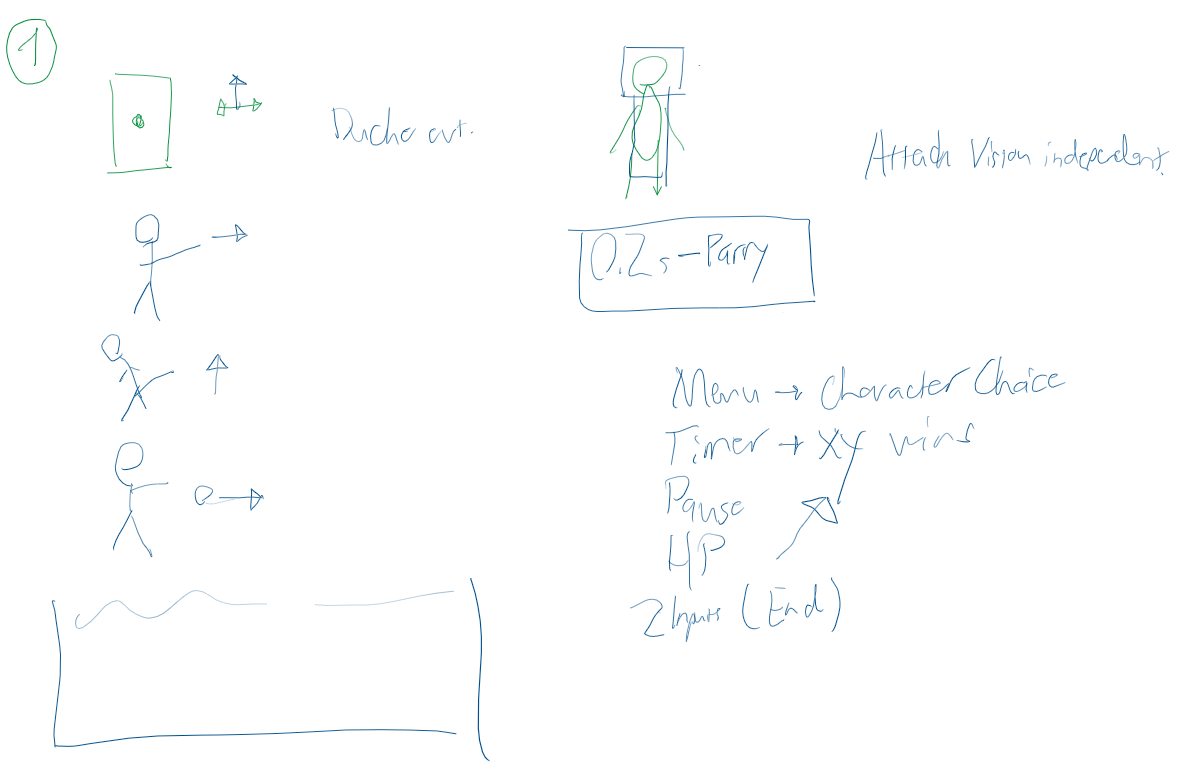 1
Attach Vision independent.
0.2s - Parry
Menu → Character Choice
Timer + XY wins
Pause
HP
2 Inputs (End)